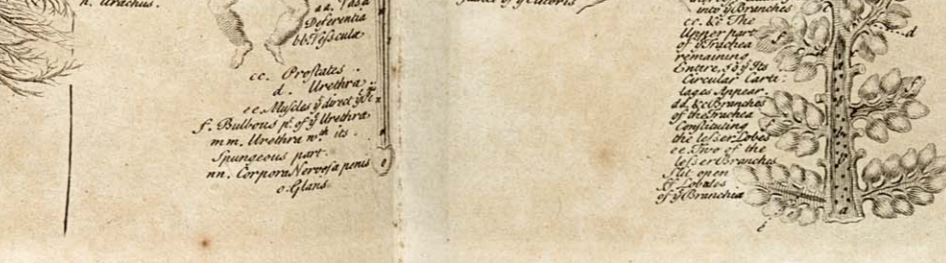 n. Urachus.
aa. Vasa
Deferentia
bb. Vesiculæ
cc. Prostates
d. Urethra
ee. Muscles yͭ direct yͤ
f. Bulbous pͭ. of yͤ Urethra
mm. Urethra wͭͪ its
Spungeous part.
nn. Corpora Nervosa penis
o. Glans.
o
of yͤ Clitoris
into yͤ Branches
cc. &c. The
Upper part
of yͤ Trachea
remaining
Entire, so yͭ Its
Circular Carti:
lages Appear.
dd, &c Branches
of the Trachea
Constituting
the lesser Lobes
ee. Two of the
lesser Branches
Slit open
ff Lobules
of yͤ Branchia
d
a
e